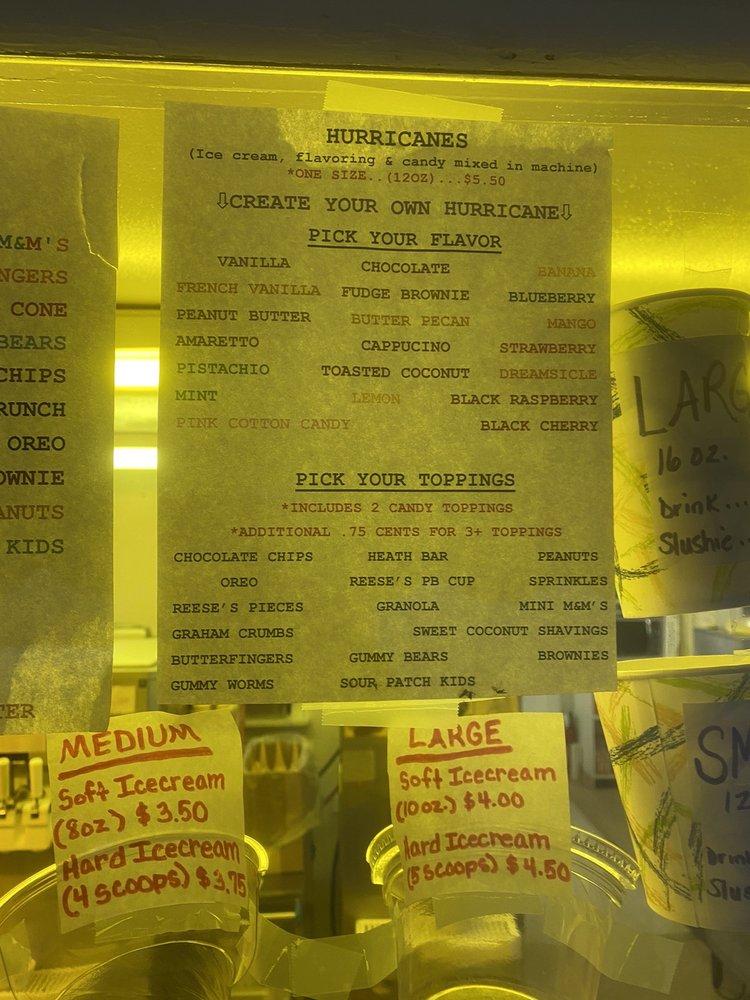 HURRICANES
(Ice cream, flavoring & candy mixed in machine)
*ONE SIZE..(12OZ)...$5.50
⇩CREATE YOUR OWN HURRICANE⇩
PICK YOUR FLAVOR
VANILLA CHOCOLATE BANANA
FRENCH VANILLA FUDGE BROWNIE BLUEBERRY
PEANUT BUTTER BUTTER PECAN MANGO
AMARETTO CAPPUCINO STRAWBERRY
PISTACHIO TOASTED COCONUT DREAMSICLE
MINT LEMON BLACK RASPBERRY
PINK COTTON CANDY BLACK CHERRY
PICK YOUR TOPPINGS
*INCLUDES 2 CANDY TOPPINGS
*ADDITIONAL .75 CENTS FOR 3+ TOPPINGS
CHOCOLATE CHIPS HEATH BAR PEANUTS
OREO REESE'S PB CUP SPRINKLES
REESE'S PIECES GRANOLA MINI M&M'S
GRAHAM CRUMBS SWEET COCONUT SHAVINGS
BUTTERFINGERS GUMMY BEARS BROWNIES
GUMMY WORMS SOUR PATCH KIDS
M&M'S
NGERS
CONE
BEARS
CHIPS
RUNCH
OREO
OWNIE
ANUTS
KIDS
TER
MEDIUM
Soft Icecream
(8oz) $3.50
Hard Icecream
(4 scoops) $3.75
LARGE
Soft Icecream
(10oz.) $4.00
Hard Icecream
(5 scoops) $4.50
LARG
16 oz.
Drink...
Slushie..
SM
12
Drin
Slus